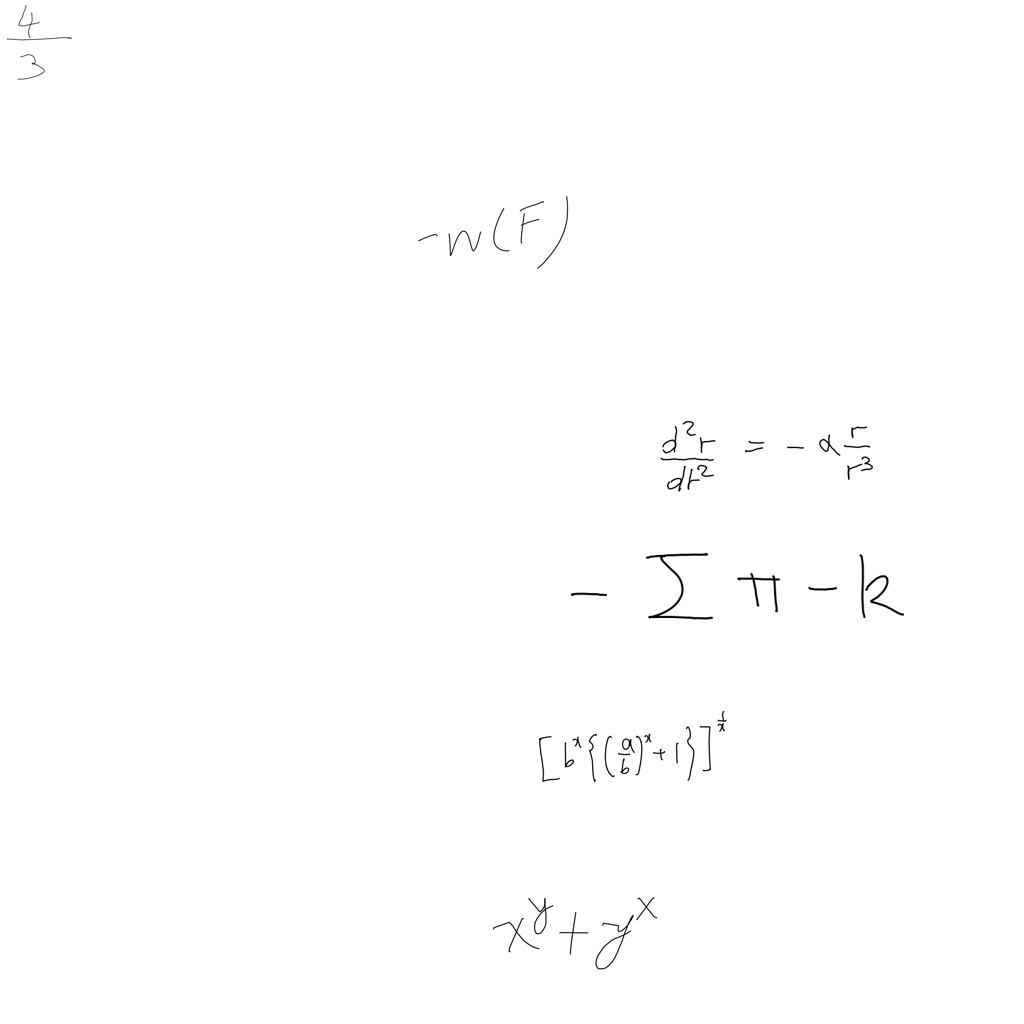 \frac{4}{3}
-w(F)
\frac{d^2r}{dt^2} = -\alpha\frac{r}{r^3}
-\sum \pi - k
[b^x\{(\frac{a}{b})^x+1\}]^{\frac{1}{x}}
x^y+y^x